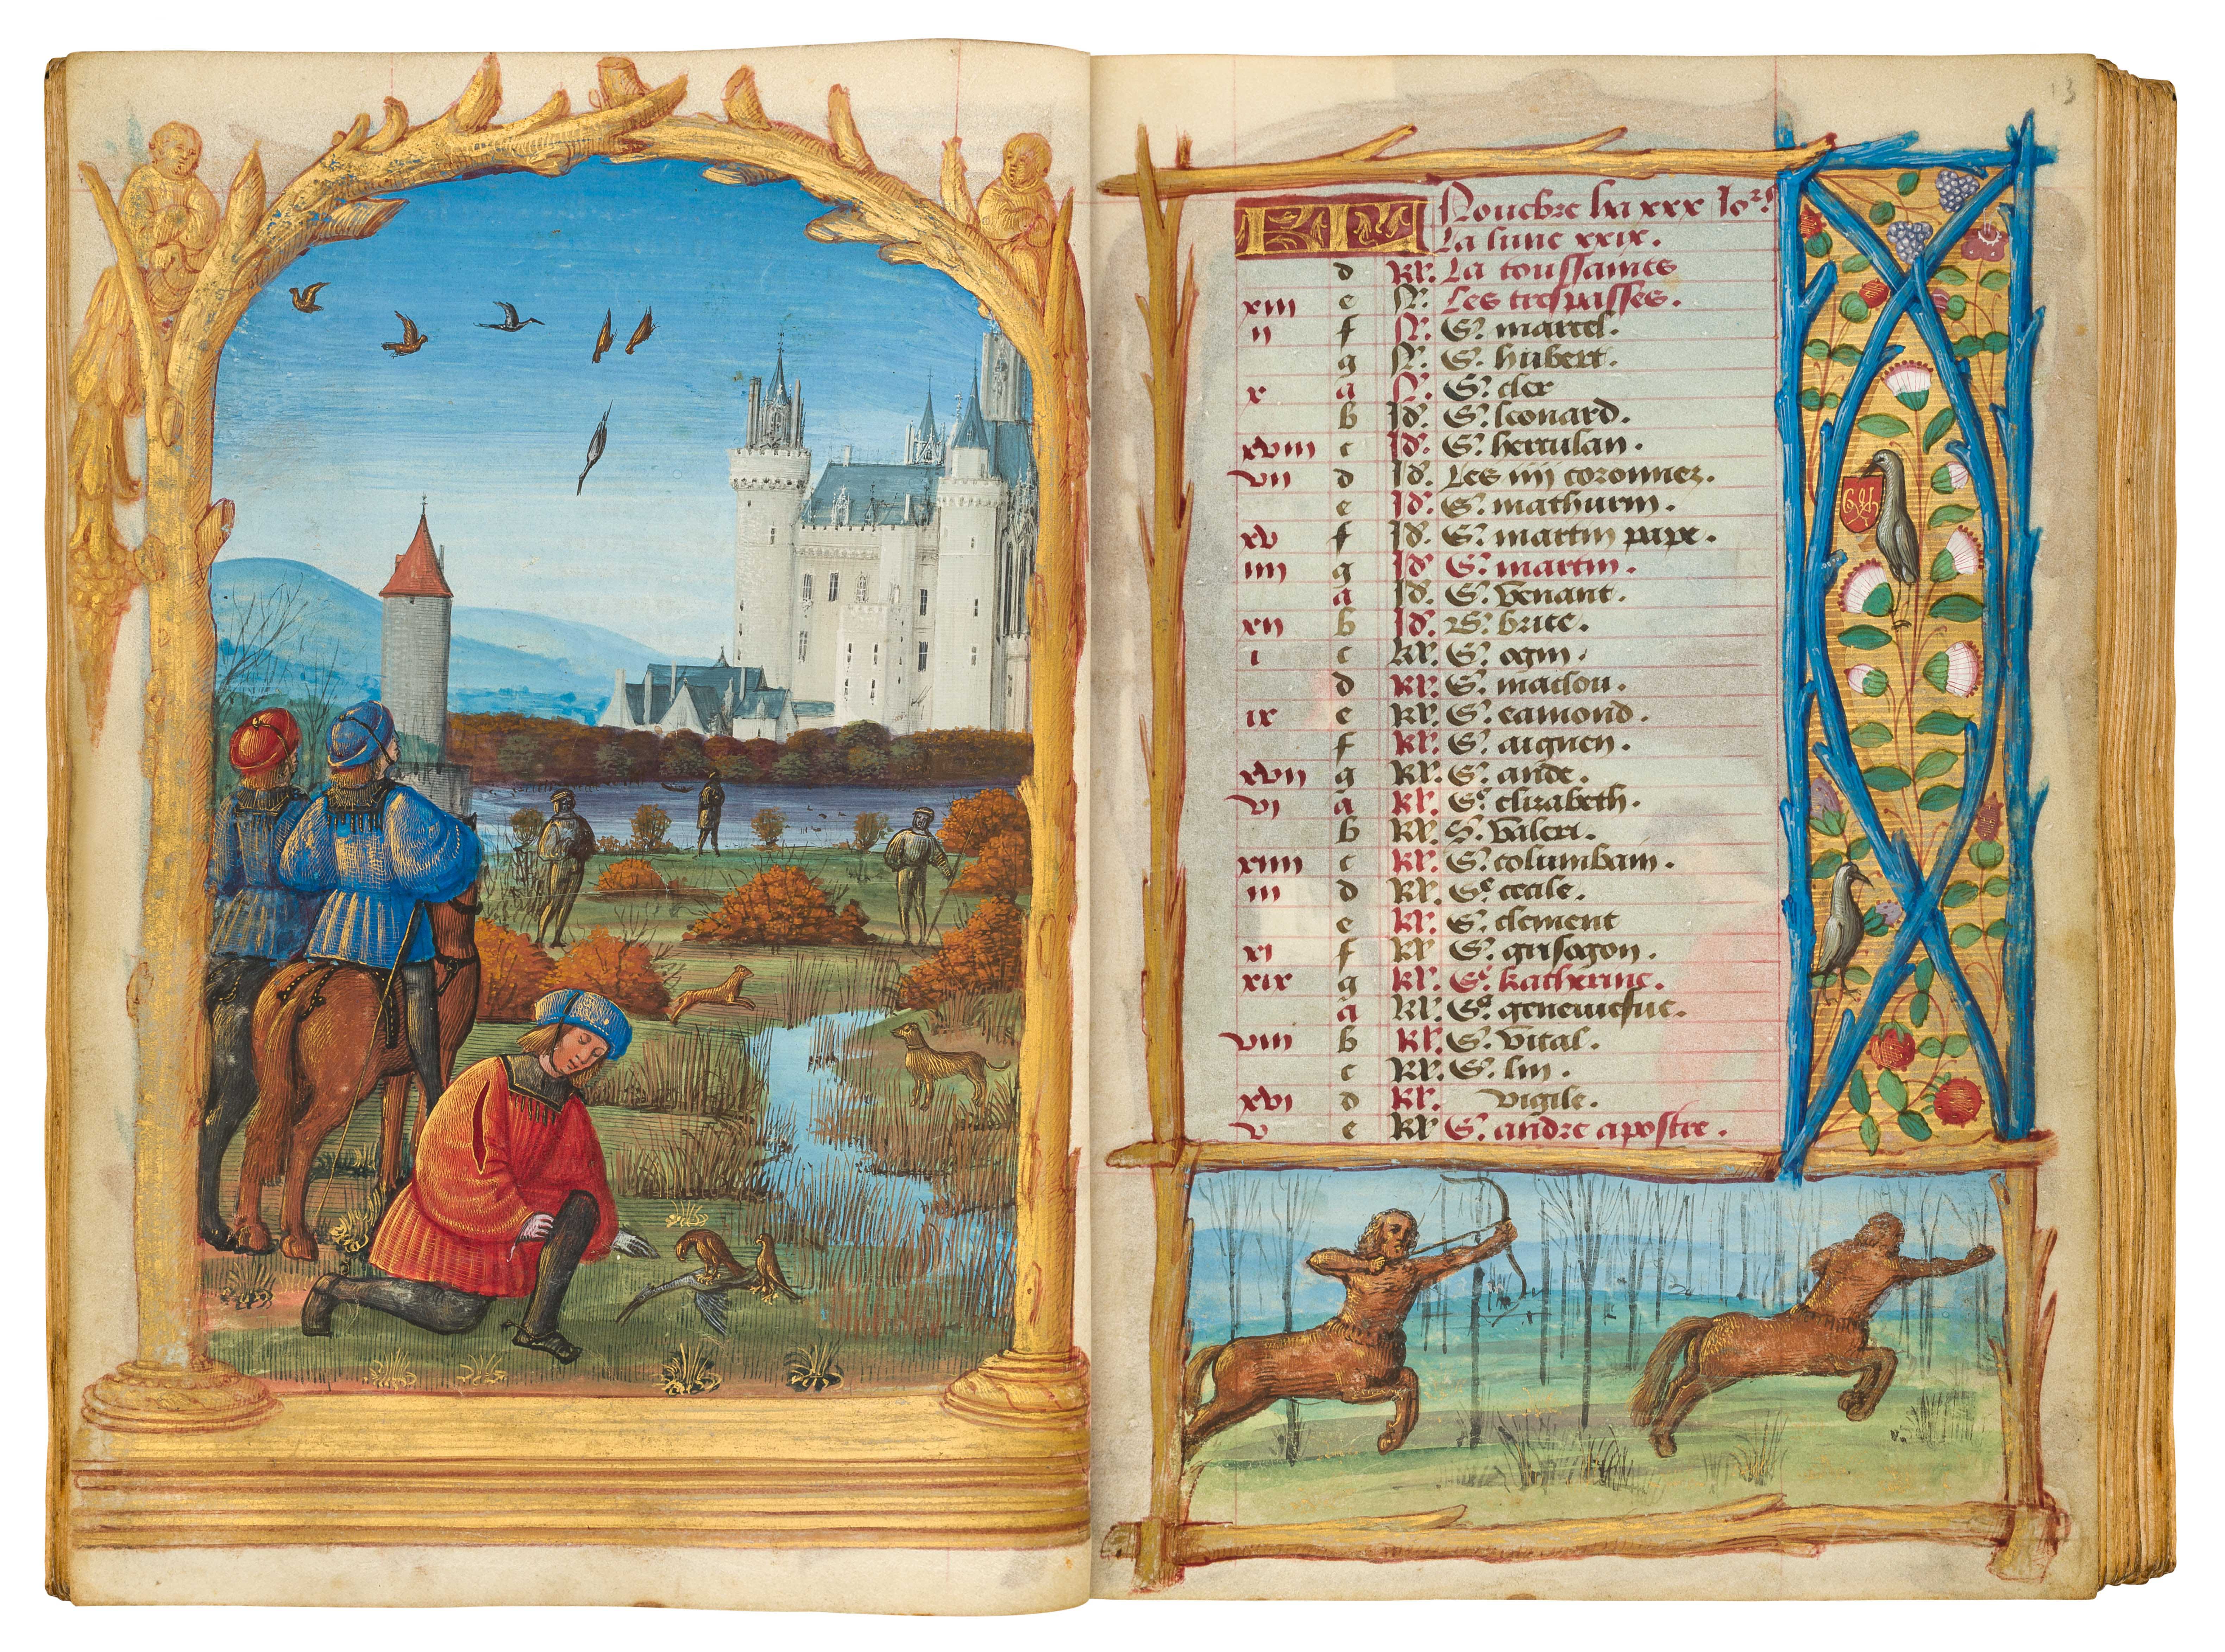 KL Nouēbre ha xxx Jors
La lune xxix.
d Kl. La toussaincts
xiii e N. Les trespasses.
ii f N. S. marcel.
g N. S. hubert.
x a N. S. cler
b Id. S. leonard.
xviii c Id. S. herculan.
vii d Id. Les iiij coronnez.
e Id. S. mathurin.
xv f Id. S. martin pape.
iiii g Id. S. martin.
a Id. S. venant.
xii b Id. S. brice.
i c Kl. S.
d Kl. S. maclou.
ix e Kl. S. eamond.
f Kl. S. aignen.
xvii g Kl. S. aude.
vi a Kl. Se elizabeth.
b Kl. S. valeri.
xiiii c Kl. S. columbain.
iii d Kl. Se cecile.
e Kl. S. clement
xi f Kl S. grisogon.
xix g Kl. Se katherine.
a Kl. Se geneuiefue.
viii b Kl. S. vital.
c Kl. S. lin.
xvi d Kl. vigile.
v e Kl S. andre apostre.
13